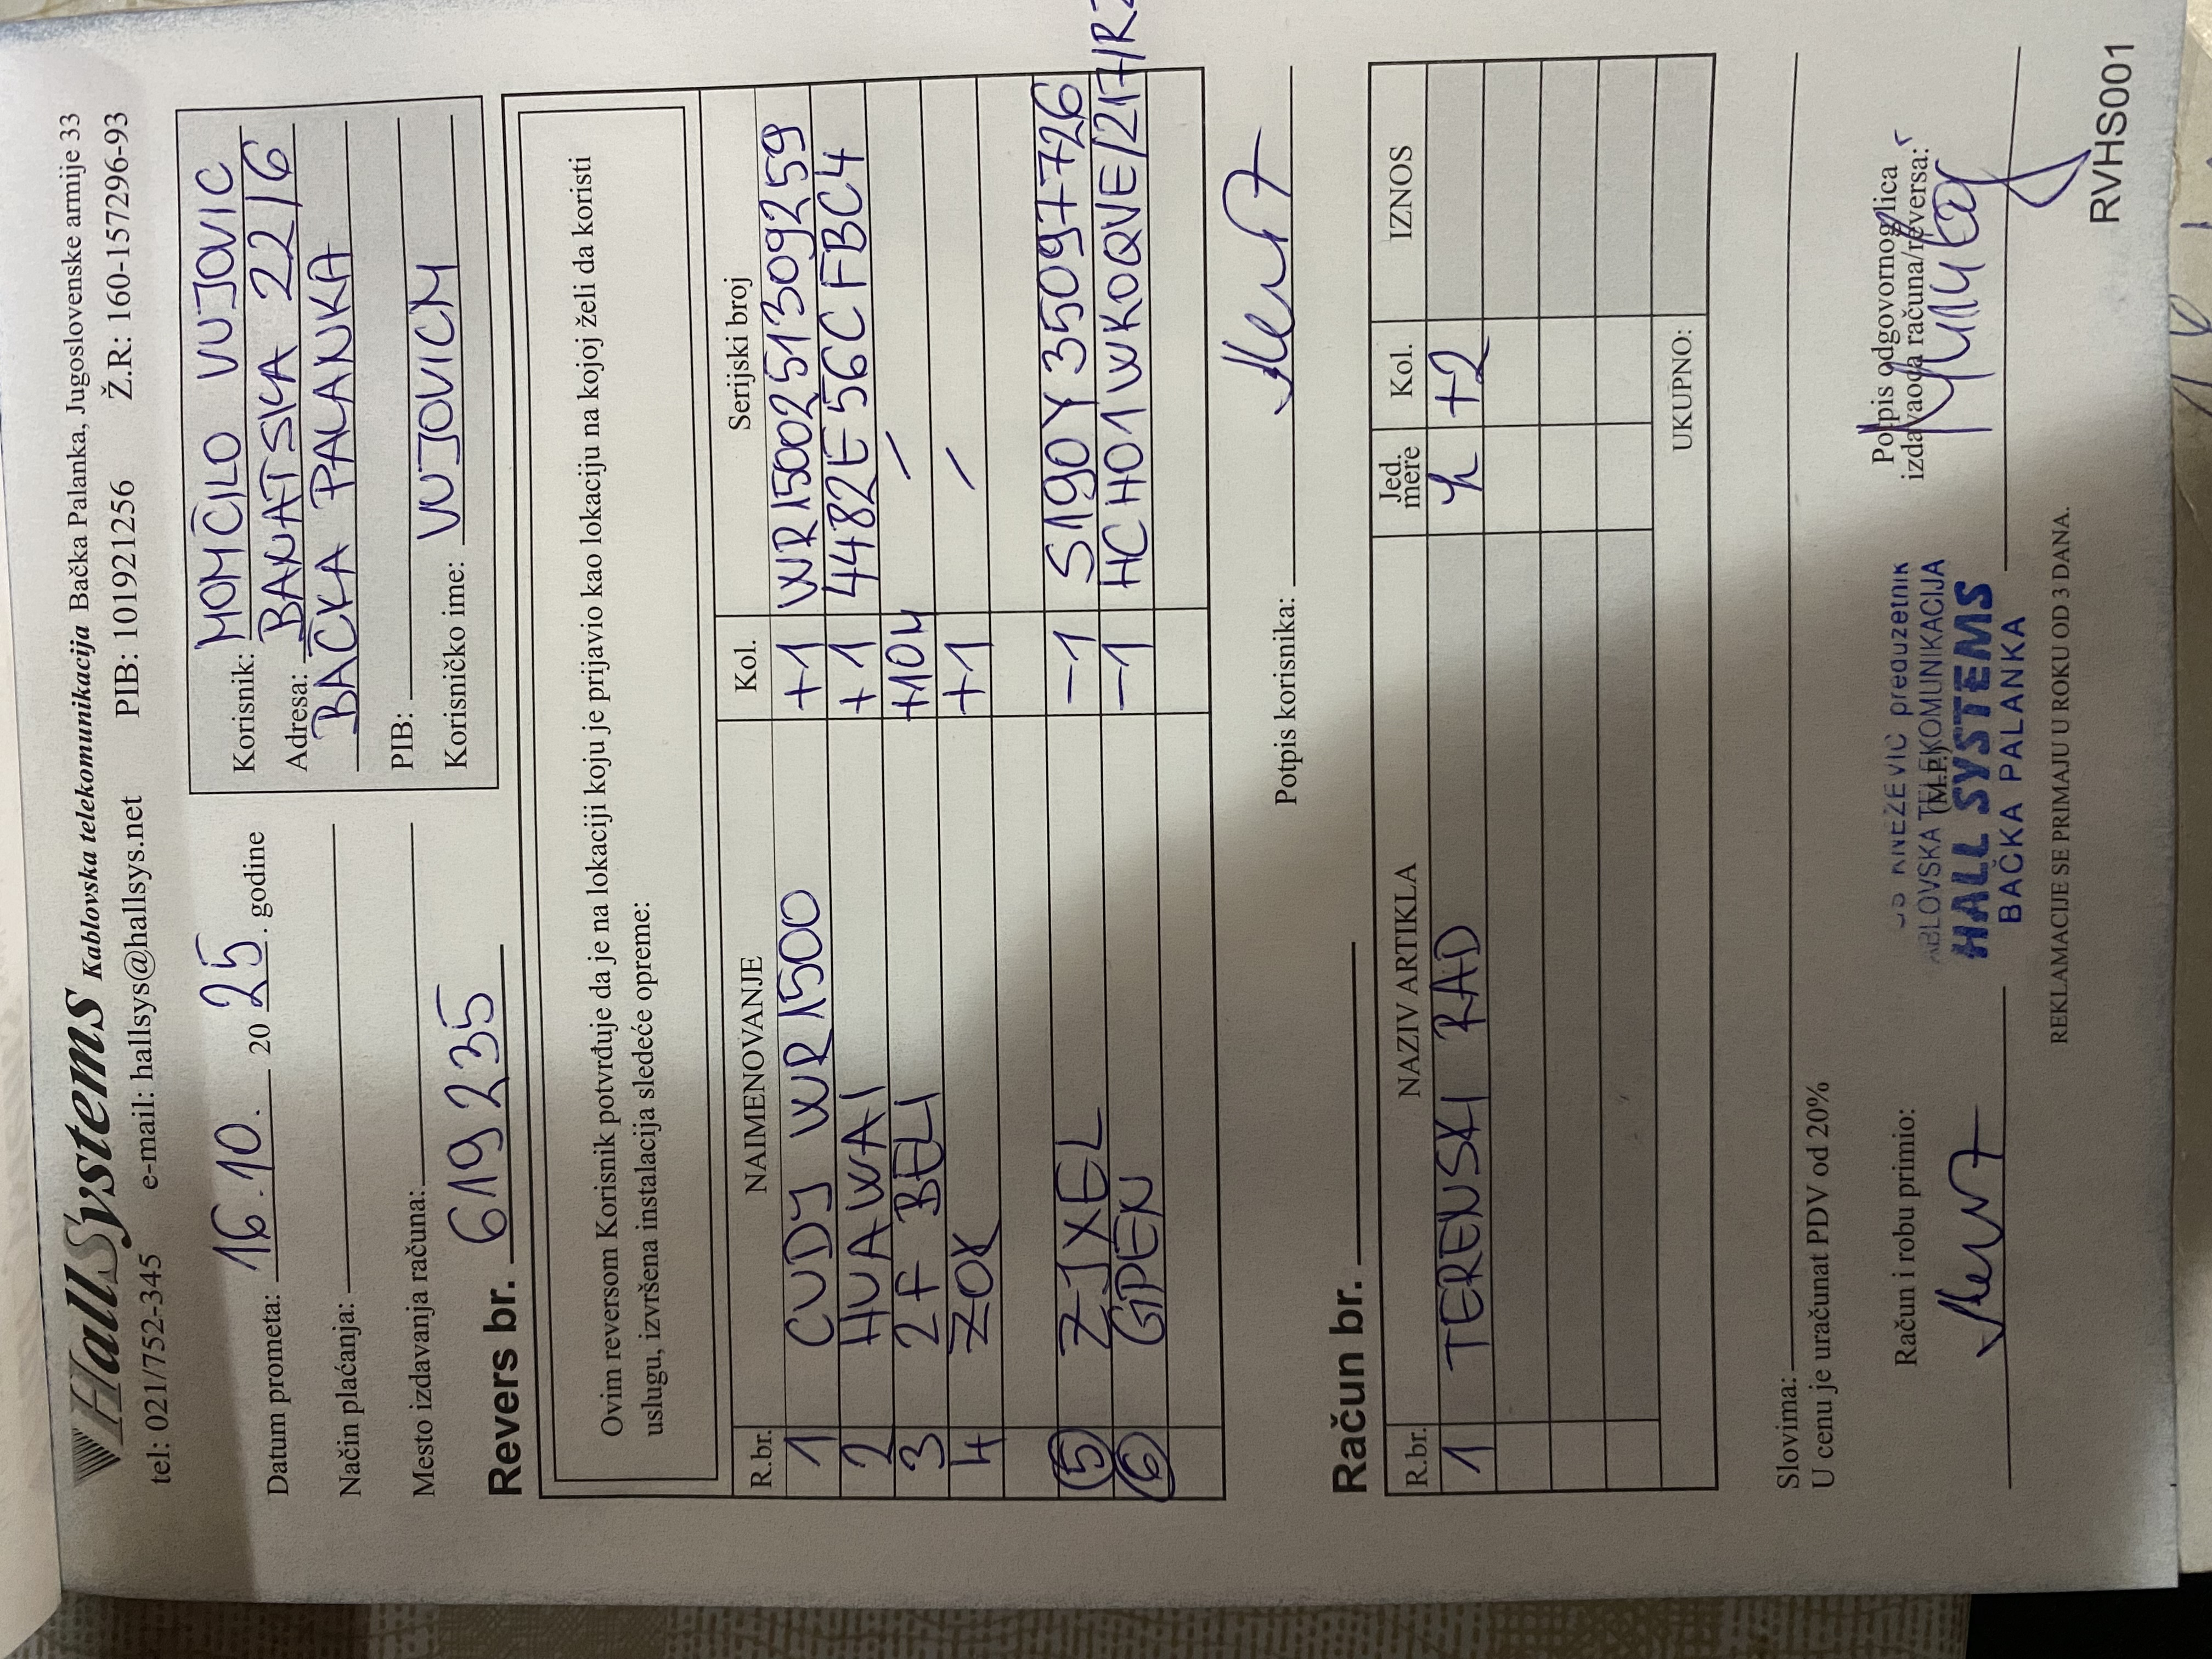 HallSystems Kablovska telekomunikacija Bačka Palanka, Jugoslovenske armije 33
tel: 021/752-345 e-mail: hallsys@hallsys.net PIB: 101921256 Ž.R: 160-157296-93
Datum prometa: 16.10. 20 25. godine
Način plaćanja:
Mesto izdavanja računa:
Korisnik: MOMČILO VUJOVIC
Adresa: BANATSKA 22/6
BAČKA PALANKA
PIB:
Korisničko ime: VUJOVICM
Revers br. 619235
Ovim reversom Korisnik potvrđuje da je na lokaciji koju je prijavio kao lokaciju na kojoj želi da koristi
uslugu, izvršena instalacija sledeće opreme:
R.br. NAIMENOVANJE Kol. Serijski broj
1 CUDY WR1500 +1 WR1500251309259
2 HUAWAI +1 4482E56CFBC4
3 2F BELI +10M /
4 ZOK +1 /
5 ZYXEL -1 S190Y35097726
6 GPEN -1 HCH01WK0QVE/217/R2
Potpis korisnika:
Račun br.
R.br. NAZIV ARTIKLA Jed. mere Kol. IZNOS
1 TERENSKI RAD h +2
UKUPNO:
Slovima:
U cenu je uračunat PDV od 20%
Račun i robu primio:
KNEŽEVIĆ preduzetnik
ABLOVSKA TELEKOMUNIKACIJA
(M.P.)
HALL SYSTEMS
BAČKA PALANKA
Potpis odgovornog lica
izdavaoca računa/reversa:
REKLAMACIJE SE PRIMAJU U ROKU OD 3 DANA.
RVHS001